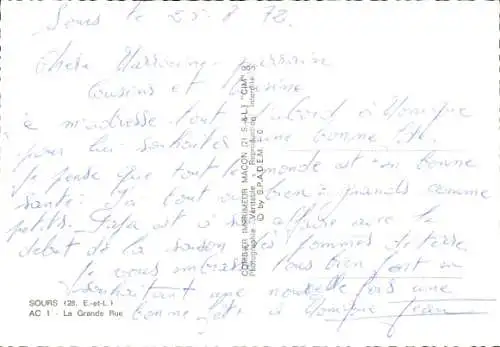 Sours le 25. 8 72.
Chers Marraine, parrain
Cousins et Cousine
Je m'adresse tout d'abord à Monique
pour lui souhaiter une bonne fête
Je pense que tout le monde est en bonne
santé. Ici tout va bien, grands comme
petits. Papa est à son affaire avec le
début de la saison des pommes de terre
Je vous embrasse tous bien fort en
souhaitant une nouvelle fois une
bonne fête à Monique Jean
COMBIER IMPRIMEUR MACON (21 S.-&-L.) "CIM"
Photographie Véritable - Reproduction Interdite
© by S.P.A.D.E.M.
SOURS (28. E.-et-L.)
AC 1 - La Grande Rue